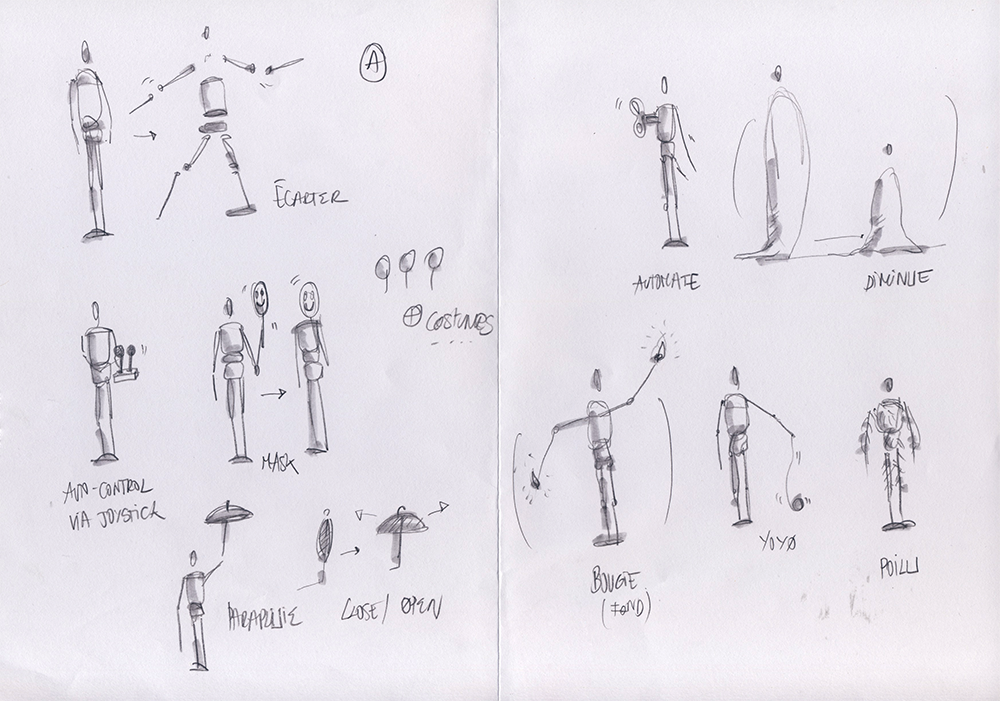 A
ÉCARTER
+ COSTUMES
AUTO-CONTROL
VIA JOYSTICK
MASK
PARAPLUIE
CLOSE / OPEN
AUTOMATE
DIMINUE
BOUGIE
(FOND)
YOYO
POILU